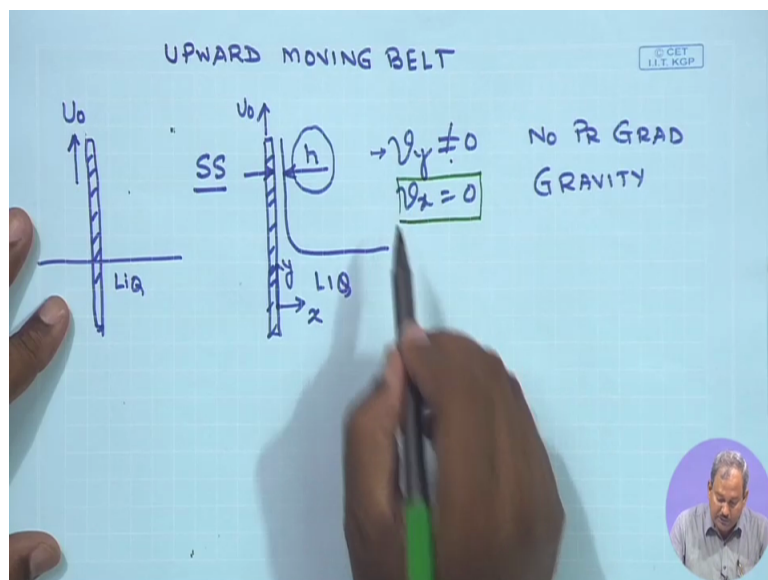 UPWARD MOVING BELT
© CET
I.I.T. KGP
U₀
LIQ
U₀
SS
h
y
LIQ
x
→ v_y ≠ 0
v_x = 0
NO PR GRAD
GRAVITY